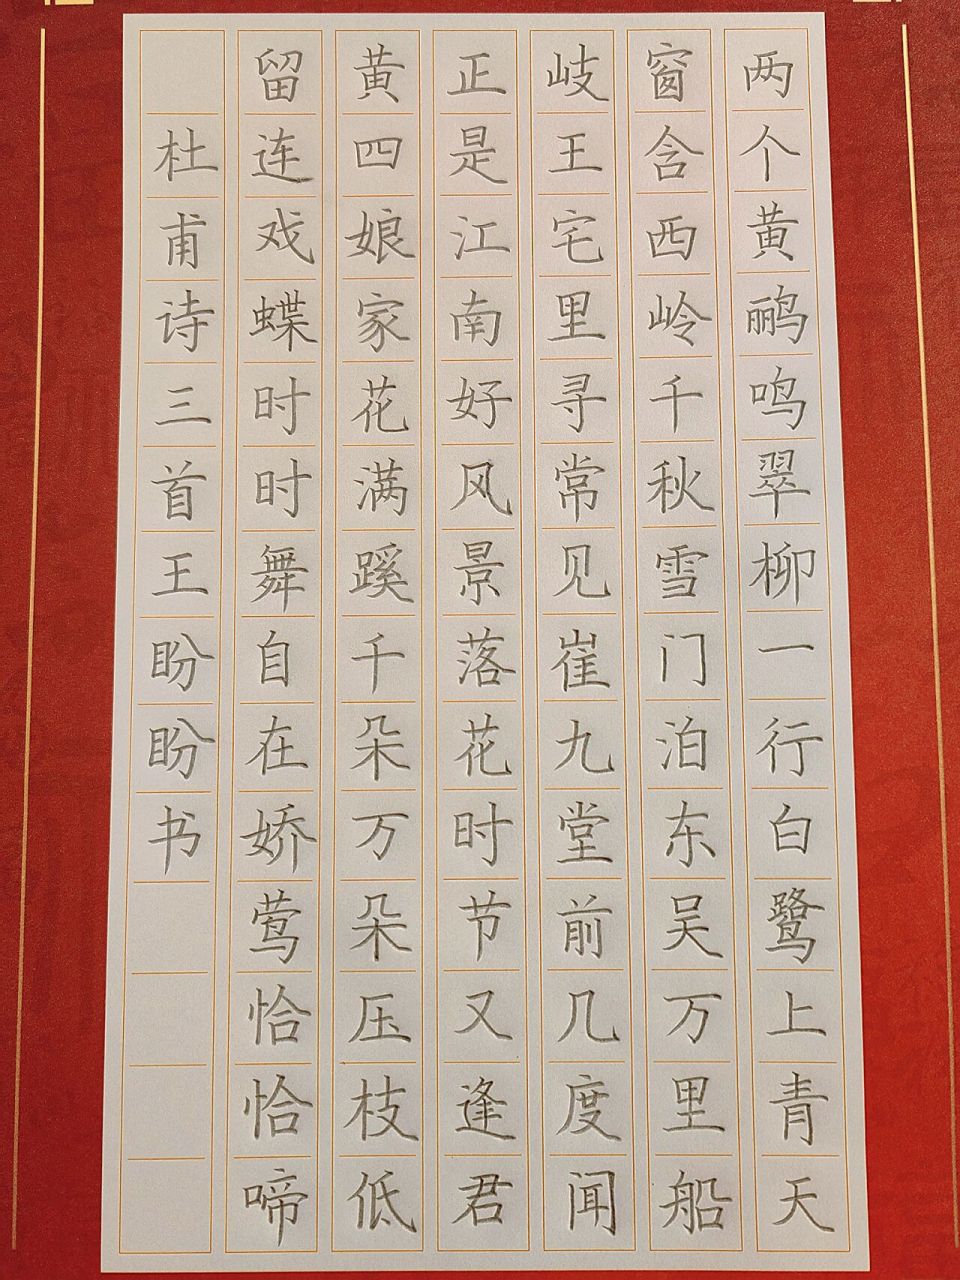 两个黄鹂鸣翠柳一行白鹭上青天
窗含西岭千秋雪门泊东吴万里船
岐王宅里寻常见崔九堂前几度闻
正是江南好风景落花时节又逢君
黄四娘家花满蹊千朵万朵压枝低
留连戏蝶时时舞自在娇莺恰恰啼
杜甫诗三首王盼盼书